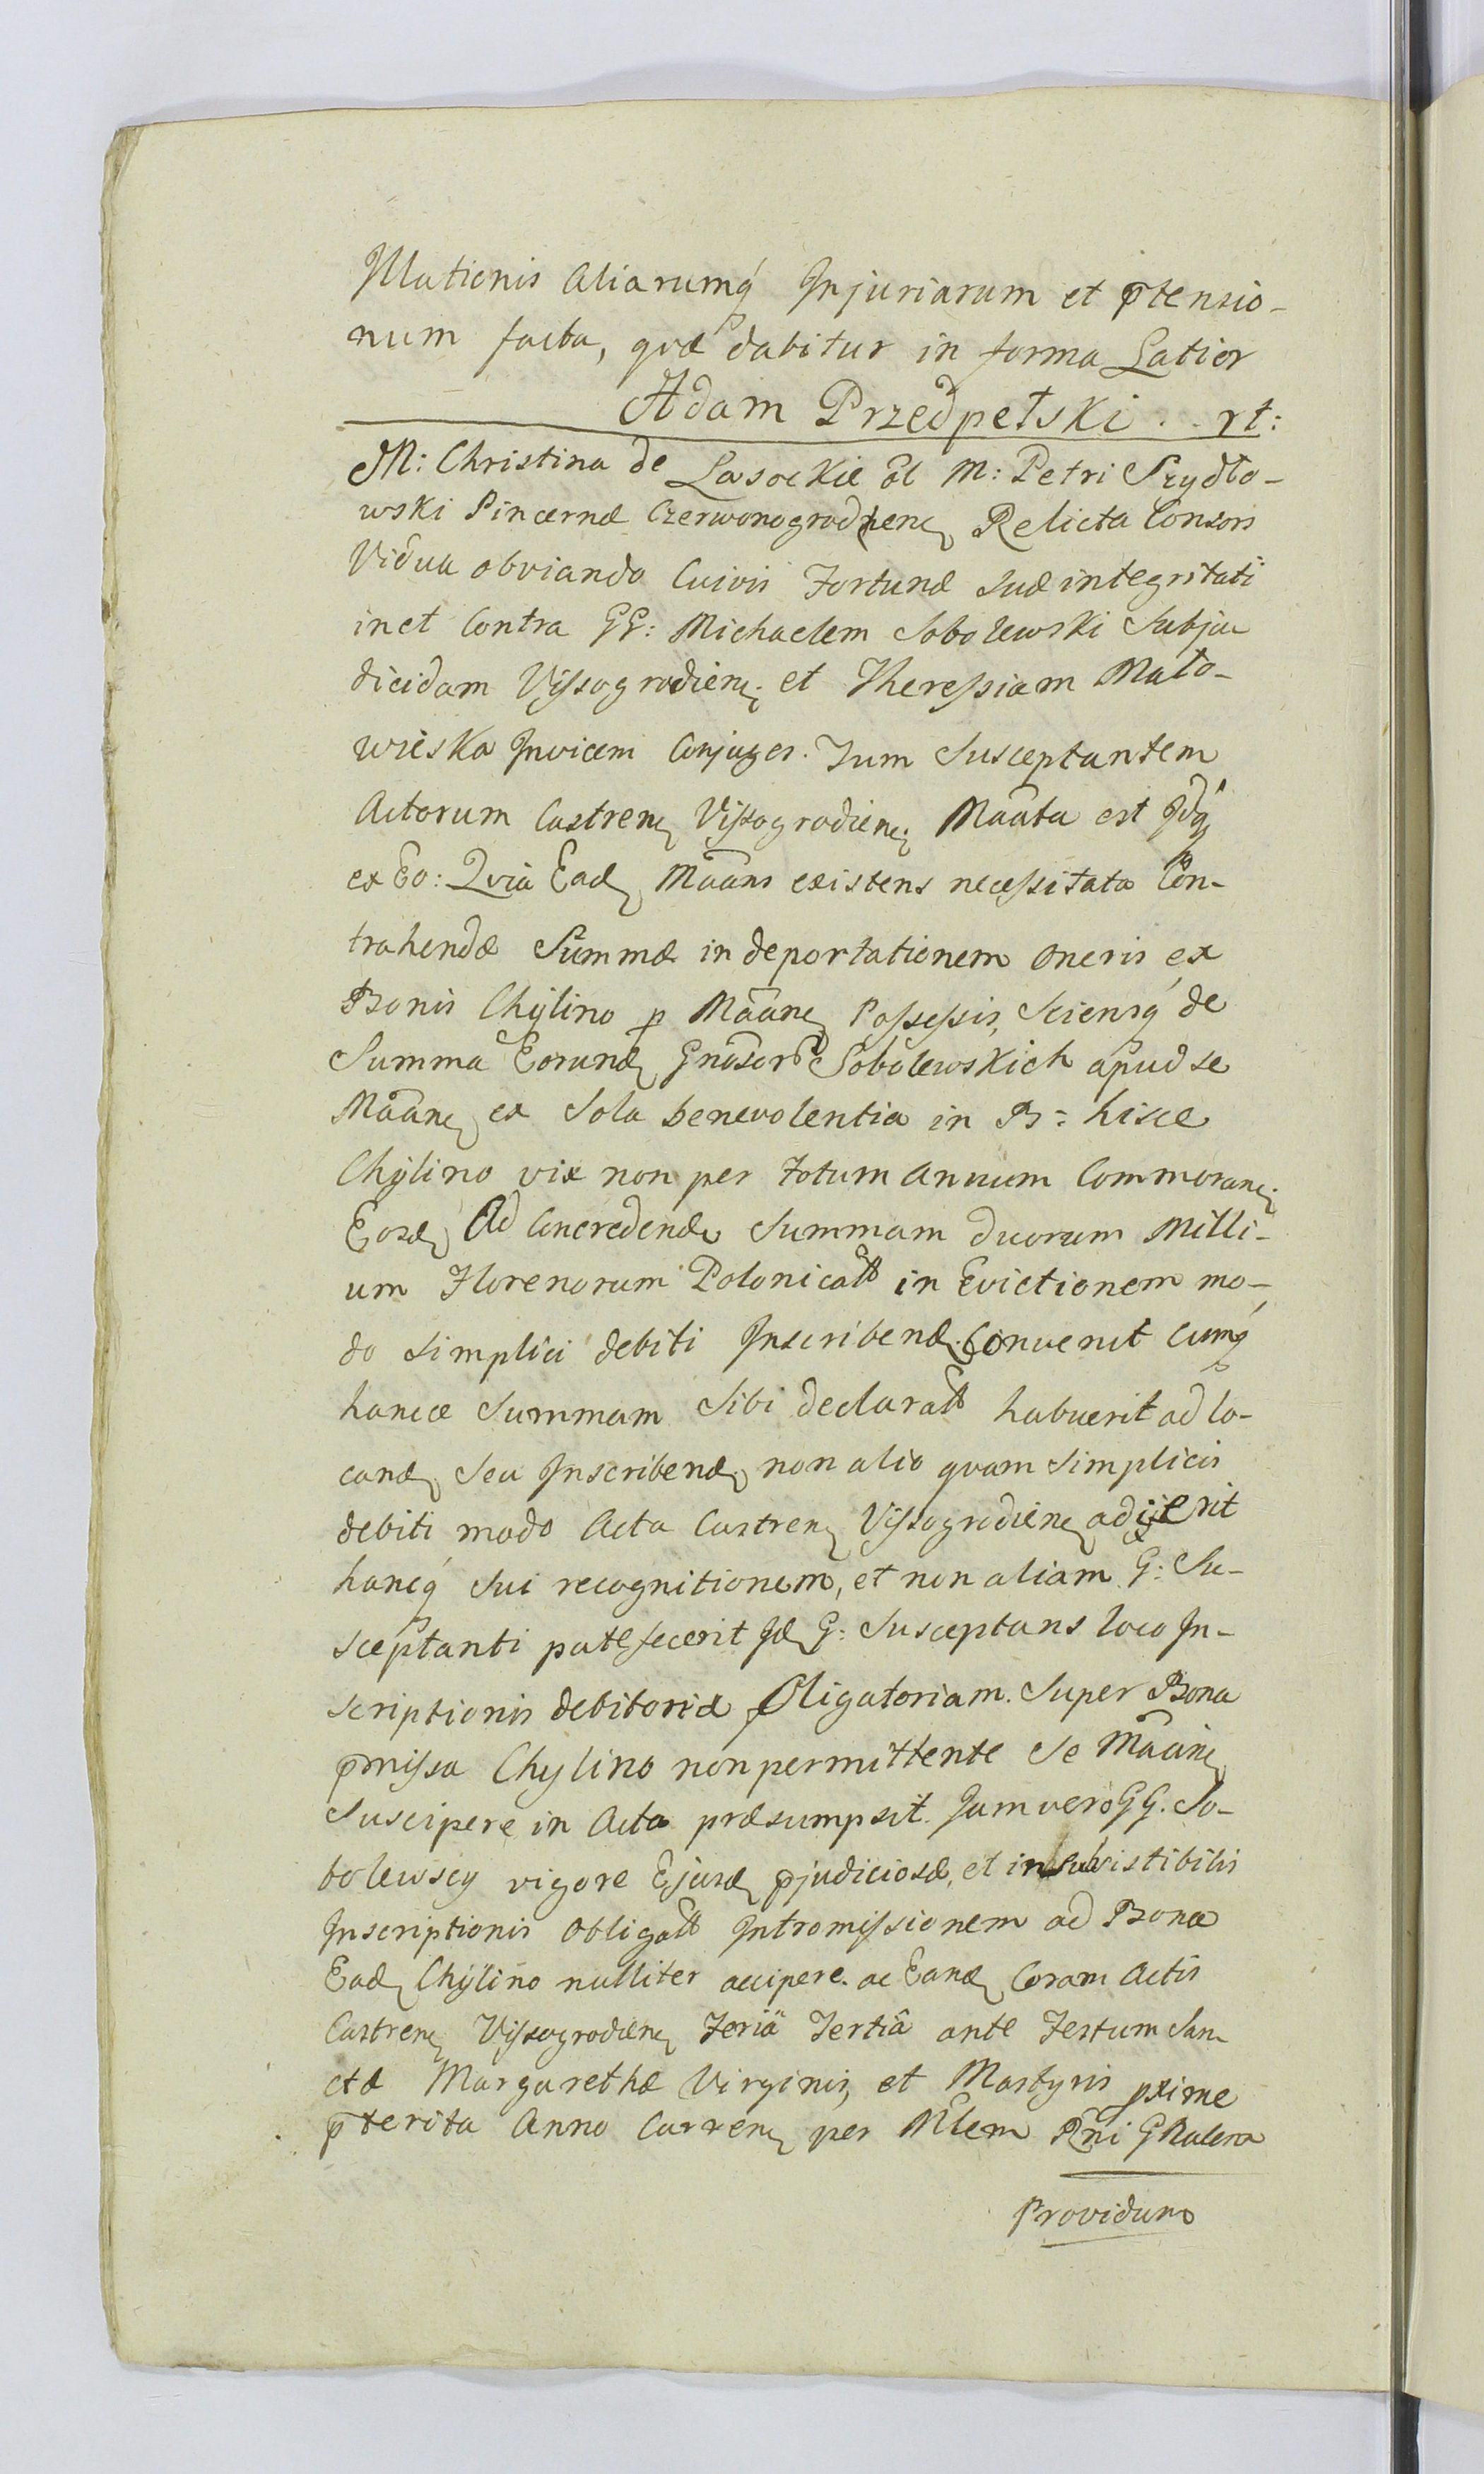 Illationis Aliarumq́ Injuriarum et p̄tensio-
num facta, qvæ dabitur in forma Latior
Adam Przedpełski . . rt:
M: Christina de Lasockie ol M: Petri Szydło-
wski Pincernæ Czerwonogrodiene Relicta Consors
Vidua obviando Cuivis Fortunæ Suæ integritati
inct Contra GG: Michaelem Sobolewski Subju
dicidam Vissogrodiene; et Theressiam Mało-
wieska Invicem Conjuges. Tum Susceptantem
Actorum Castrene Vissogrodiene; Maāta est Idq́
ex Eo: Qvia Ead, Maāns existens necessitata Con-
trahendæ Summæ in deportationem Oneris ex
Bonis Chÿlino p Maāne Possessis, Sciensq́ de
Summa Eorund, Gnosor Sobolewskich apud se
Maāne ex Sola benevolentia in B: hisce
Chÿlino vix non per totum Annum Commorane;
Eosd, Ad Concredend Summam duorum Milli-
um Florenorum Polonicall in Evictionem mo-
do simplici debiti Inscribend, Convenit Cumq́
hancce Summam Sibi declarall habuerit ad lo-
cand, Seu Inscribend, non alio qvam Simplicis
debiti modo Acta Castrene Vissogrodiene adijerit
hancq́ Sui recognitionem, et non aliam G: Su-
sceptanti patefecerit Id, G: Susceptans loco In-
scriptionis debitoriæ Obligatoriam. Super Bona
p̄missa Chylino non permittente Se Maāne
Suscipere in Acta præsumpsit. Jam vero GG. So-
bolewscy vigore Ejusd, p̄judiciosæ, et insubsistibilis
Inscriptionis Obligall Intromissionem ad Bona
Ead, Chÿlino nulliter accipere. ac Eand, Coram Actis
Castrene Vissogrodiene Feriâ Tertiâ ante Festum San-
ctæ Margarethæ Virginis, et Martyris pxime
p̄terita Anno Currene per Mlem Rni GRalem
Providum